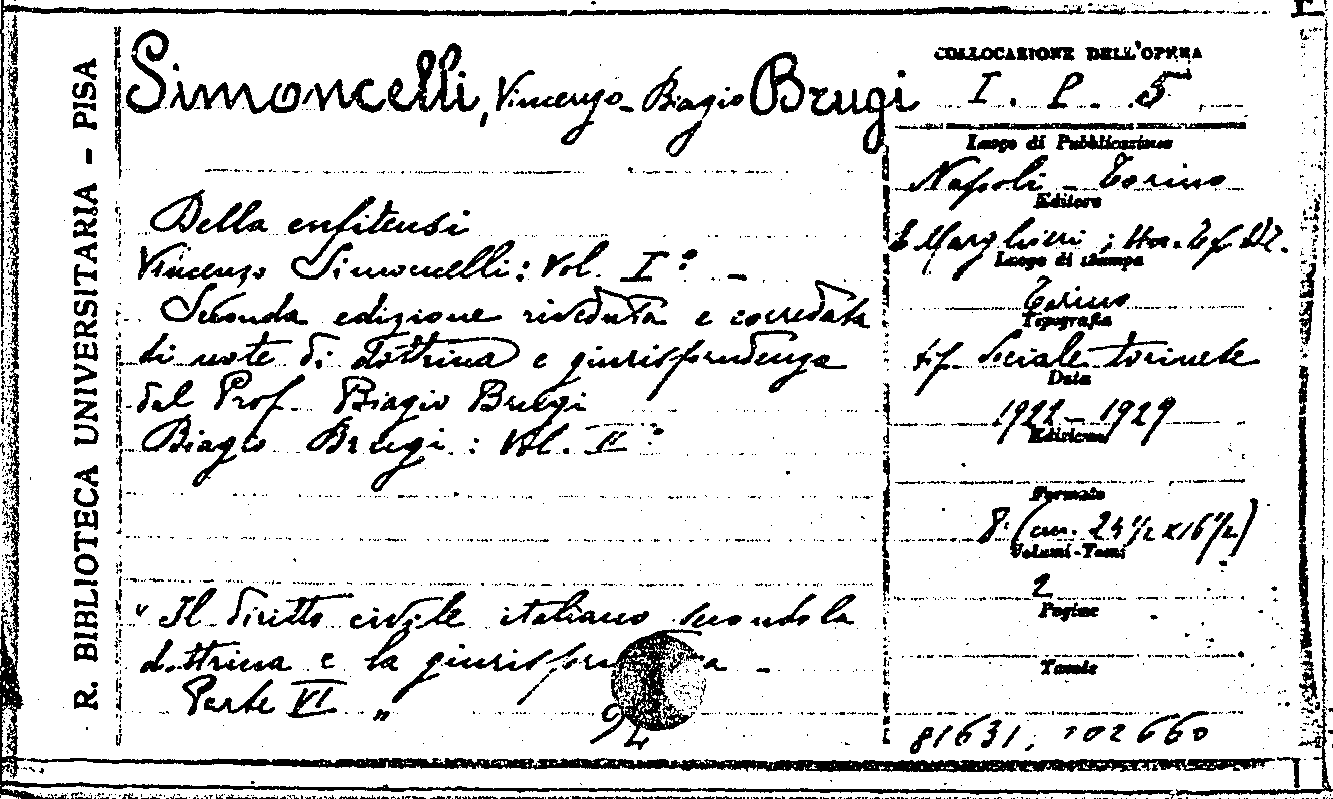 R. BIBLIOTECA UNIVERSITARIA - PISA
Simoncelli, Vincenzo - Biagio Brugi
Della enfiteusi
Vincenzo Simoncelli: Vol. I° -
Seconda edizione riveduta e corredata
di note di dottrina e giurisprudenza
dal Prof. Biagio Brugi
Biagio Brugi : Vol. II°
"Il diritto civile italiano secondo la
dottrina e la
Parte VI "
94
COLLOCAZIONE DELL'OPERA
I. P. 5
Luogo di Pubblicazione
Napoli - Torino
Editore
Marghieri ;
Luogo di stampa
Torino
Tipografia
tip. Sociale torinese
Data
1922 - 1929
Edizione
Formato
8° (cm. 24 1/2 x 16 1/2)
Volumi - Tomi
2
Pagine
Tavole
81631, 102660